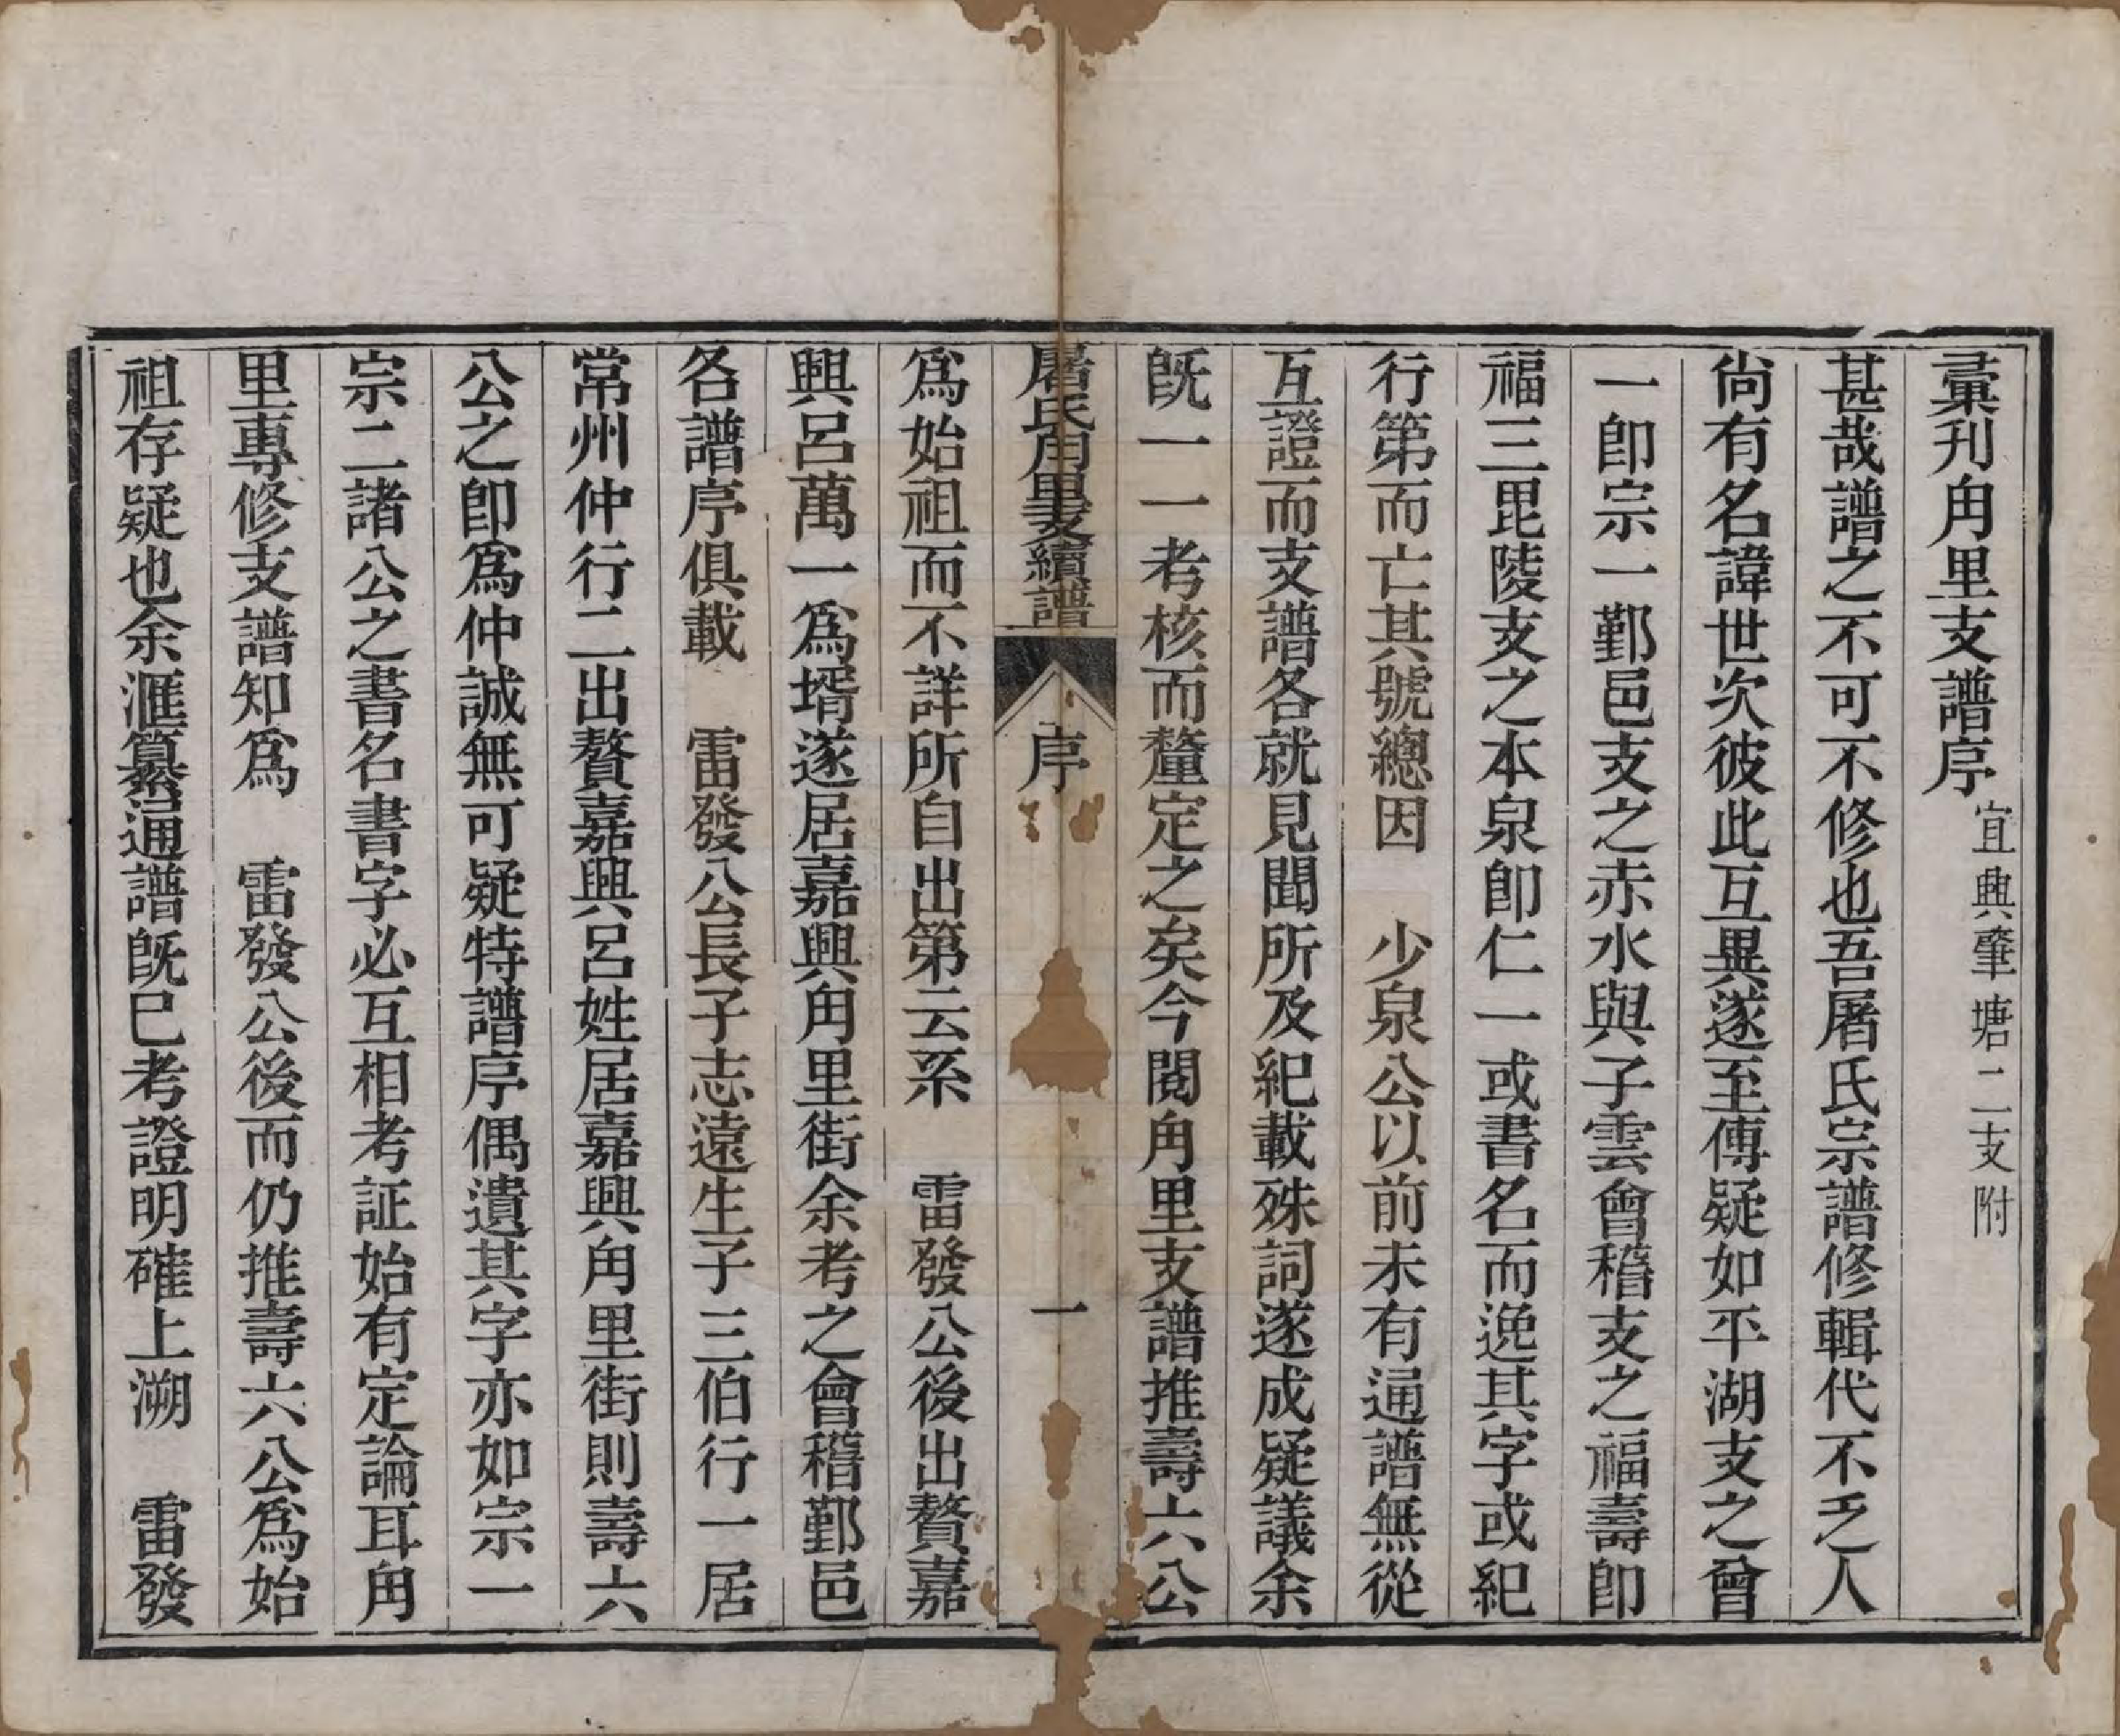 彙刋甪里支譜序宜興肇塘二支附
甚哉譜之不可不修也吾屠氏宗譜修輯代不乏人
尙有名諱世次彼此互異遂至傳疑如平湖支之曾
一卽宗一鄞邑支之赤水與子雲會稽支之福壽卽
福三毘陵支之本泉卽仁一或書名而逸其字或紀
行第而亡其號總因　少泉公以前未有通譜無從
互證而支譜各就見聞所及紀載殊詞遂成疑議余
旣一一考核而釐定之矣今閱甪里支譜推壽六公
屠氏甪里支續譜　序　一
爲始祖而不詳所自出第云系　雷發公後出贅嘉
興呂萬一爲壻遂居嘉興甪里街余考之會稽鄞邑
各譜序俱載　雷發公長子志遠生子三伯行一居
常州仲行二出贅嘉興呂姓居嘉興甪里街則壽六
公之卽爲仲誠無可疑特譜序偶遺其字亦如宗一
宗二諸公之書名書字必互相考証始有定論耳甪
里專修支譜知爲　雷發公後而仍推壽六公爲始
祖存疑也余滙纂通譜旣巳考證明確上溯　雷發